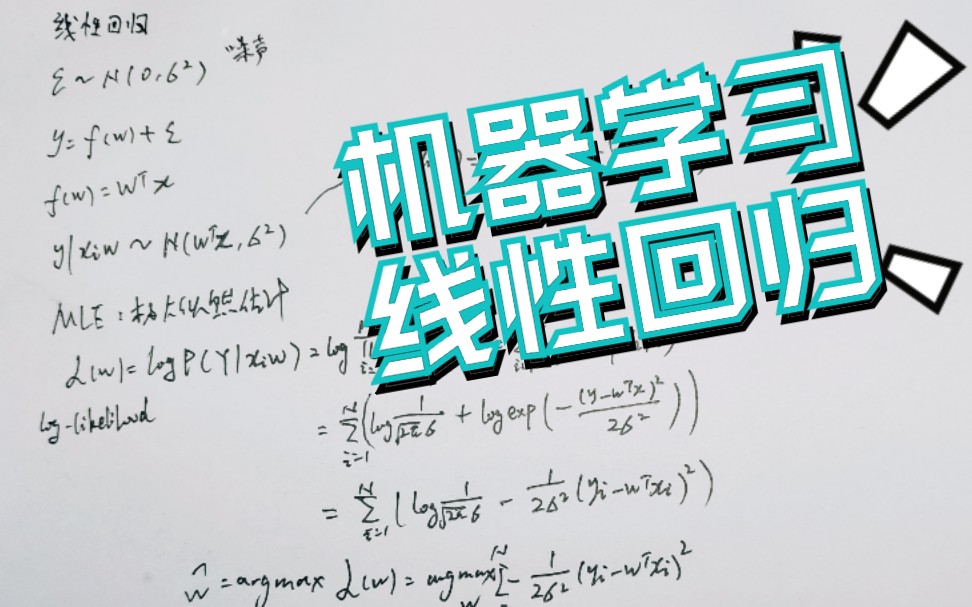 线性回归
ε ~ N(0, σ²) 噪声
y = f(w) + ε
f(w) = wᵀx
y|x;w ~ N(wᵀx, σ²)
机器学习
线性回归
MLE:极大似然估计
L(w) = log P(Y|x;w) = log
log-likelihood
= Σ_{i=1}^{N} (log 1/(√2π σ) + log exp(-(y-wᵀx)²/2σ²))
= Σ_{i=1}^{N} (log 1/(√2π σ) - 1/2σ² (yᵢ-wᵀxᵢ)²)
ŵ = argmax L(w) = argmax - 1/2σ² (yᵢ-wᵀxᵢ)²